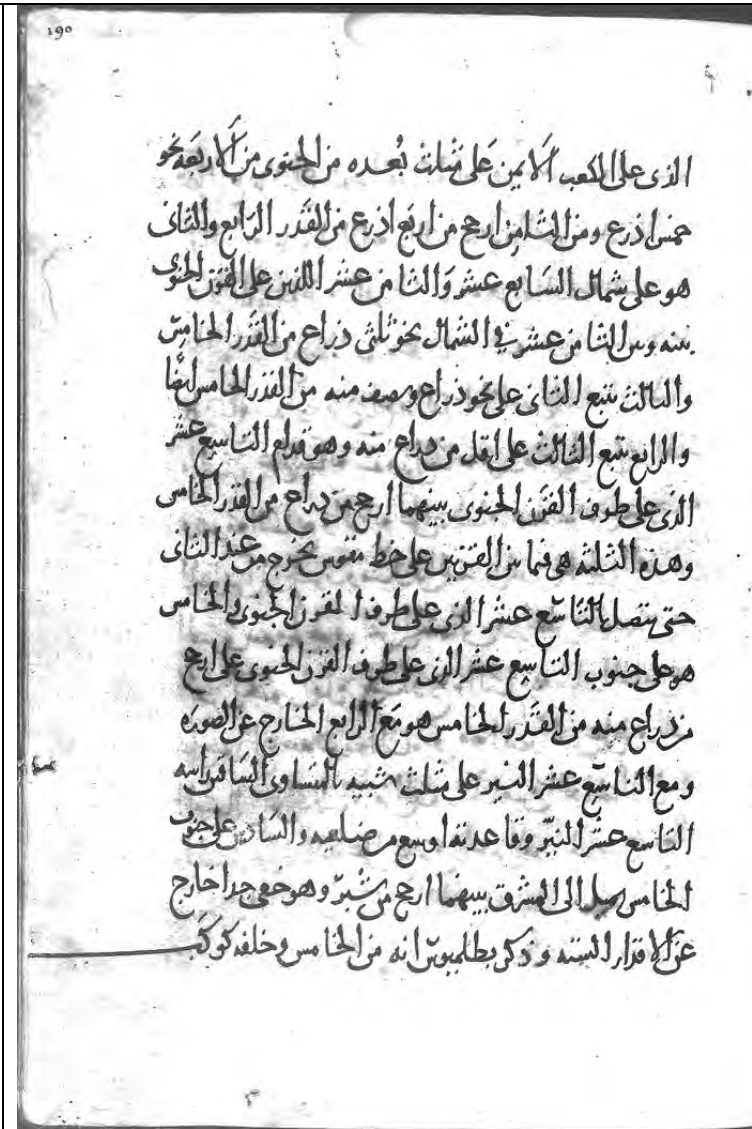 190
الذى على الكعب الايمن على مثلث بُعده من الجنوبى من الاربعه نحو
خمس اذرع ومن الشامن ارجح من اربع اذرع من القدر الرابع والثانى
هو على شمال السابع عشر والثامن عشر اللذين على القرن الجنوبى
بينه وبين الثامن عشر فى الشمال نحو ثلثى ذراع من القدر الخامس
والثالث يتبع الثانى على نحو ذراع ونصف منه من القدر الخامس ايضًا
والرابع يتبع الثالث على اقل من ذراع منه وهو قدام التاسع عشر
الذى على طرف القرن الجنوبى بينهما ارجح من ذراع من القدر الخامس
وهذه الثلثه هى فيما بين القرنين على خط مقوس يخرج من عند الثانى
حتى يتصل بالتاسع عشر الذى على طرف القرن الجنوبى والخامس
هو على جنوب التاسع عشر الذى على طرف القرن الجنوبى على ارجح
من ذراع منه من القدر الخامس هو مع الرابع الخارج عن الصوره
ومع التاسع عشر النير على مثلث شبيه بالمتساوى الساقين راسه
التاسع عشر النيّر وقاعدته اوسع من ضلعيه والسادس على جنوب
الخامس يميل الى المشرق بينهما ارجح من شبر وهو خفى جدا خارج
عن الاقدار الستة وذكر بطلميوس انه من الخامس وخلفه كوكب